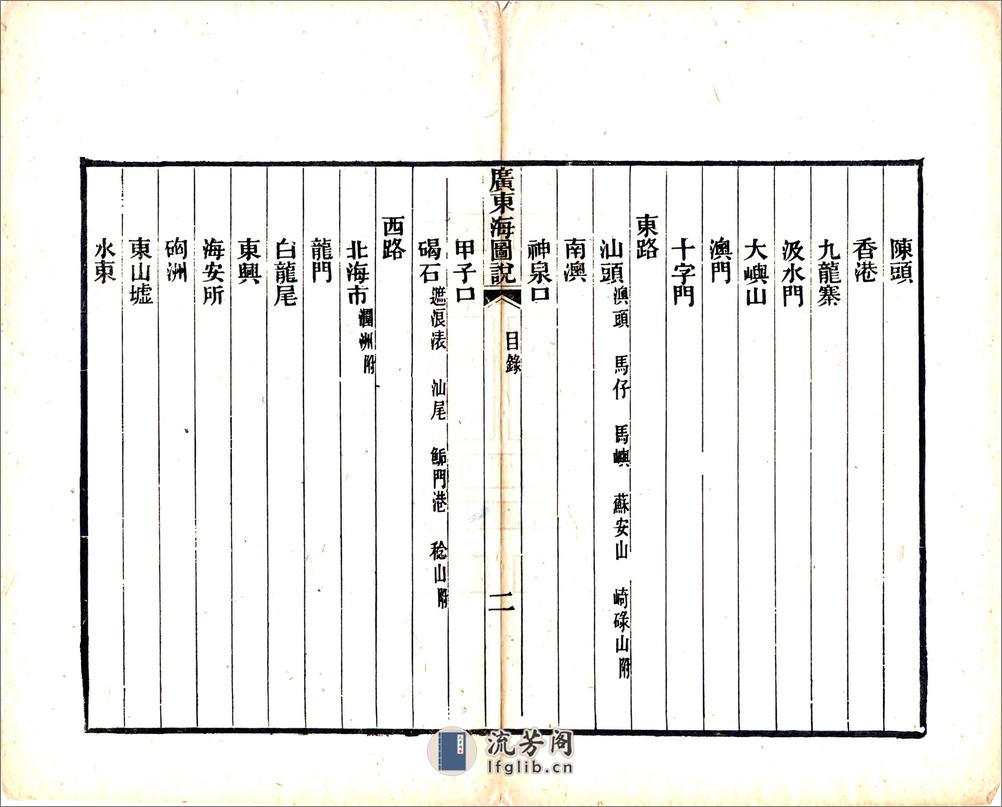 陳頭
香港
九龍寨
汲水門
大嶼山
澳門
十字門
東路
汕頭澳頭 馬仔 馬嶼 蘇安山 崎碌山附
南澳
神泉口
廣東海圖說 目錄 二
甲子口
碣石遮浪㴝 汕尾 鮜門港 稔山附
西路
北海市潿洲附
龍門
白龍尾
東興
海安所
硇洲
東山墟
水東
流芳阁
lfglib.cn